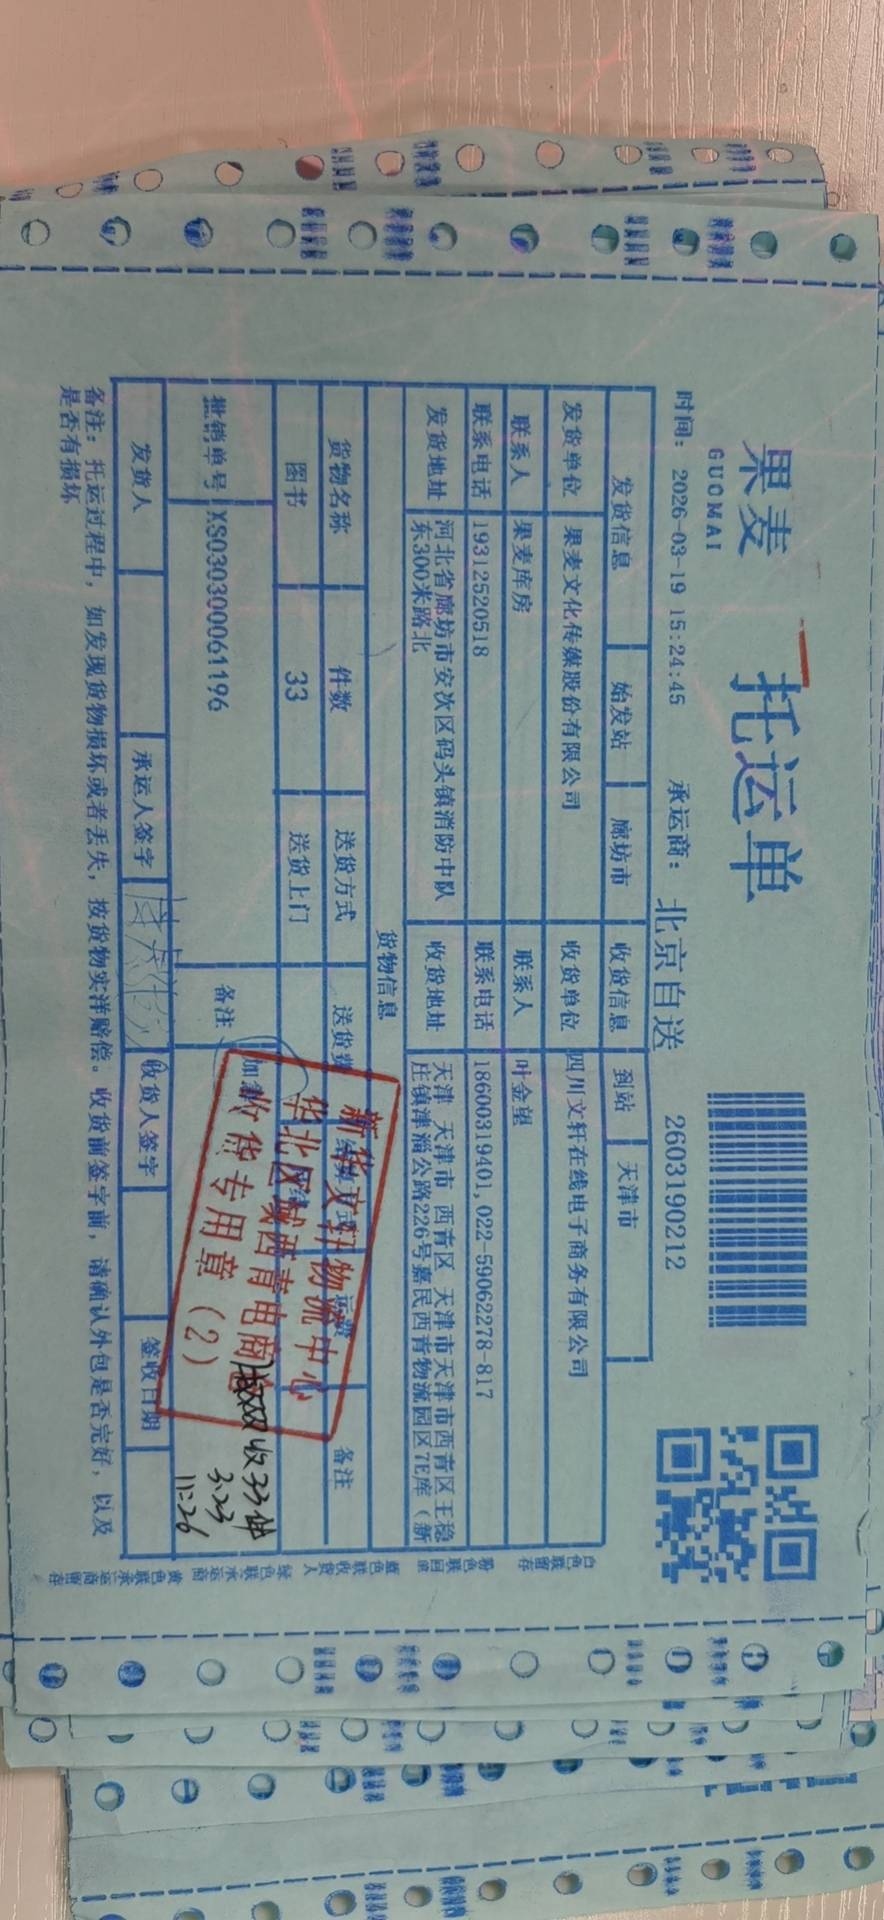 果麦
GUOMAI
托运单
时间: 2026-03-19 15:24:45 承运商: 北京自送 2603190212
发货信息 始发站 廊坊市 收货信息 到站 天津市
发货单位 果麦文化传媒股份有限公司 收货单位 四川文轩在线电子商务有限公司
联系人 果麦库房 联系人 叶金望
联系电话 19312520518 联系电话 18600319401,022-59062278-817
发货地址 河北省廊坊市安次区码头镇消防中队东300米路北 收货地址 天津 天津市 西青区 天津市天津市西青区王稳庄镇津淄公路226号嘉民西青物流园区7E库(新
货物信息
货物名称 件数 送货方式 送货费 结算方式 运费 备注
图书 33 送货上门
批销单号 XS030300061196 备注 加急
新华文轩物流中心
华北区域西青电商
收货专用章(2)
收33件
3.23
11:26
发货人 承运人签字 收货人签字 签收日期
备注: 托运过程中, 如发现货物损坏或者丢失, 按货物实洋赔偿。收货前签字前, 请确认外包是否完好, 以及
是否有损坏
白色联留存 粉色联回单 蓝色联收货人 绿色联承运商 黄色联承运商留存